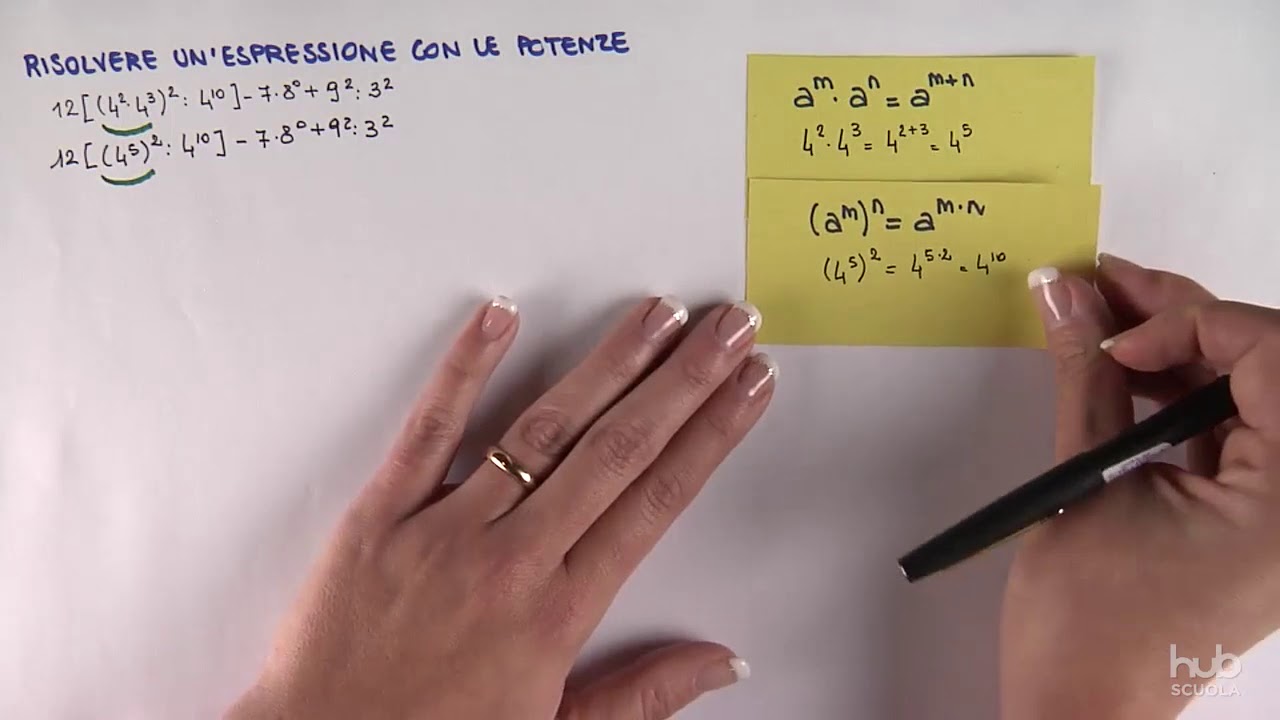 RISOLVERE UN'ESPRESSIONE CON LE POTENZE
12[(4²·4³)²:4¹⁰]-7·8⁰+9²:3²
12[(4⁵)²:4¹⁰]-7·8⁰+9²:3²
aᵐ·aⁿ=aᵐ⁺ⁿ
4²·4³=4²⁺³=4⁵
(aᵐ)ⁿ=aᵐ·ᴺ
(4⁵)²=4⁵·²=4¹⁰
hub
SCUOLA